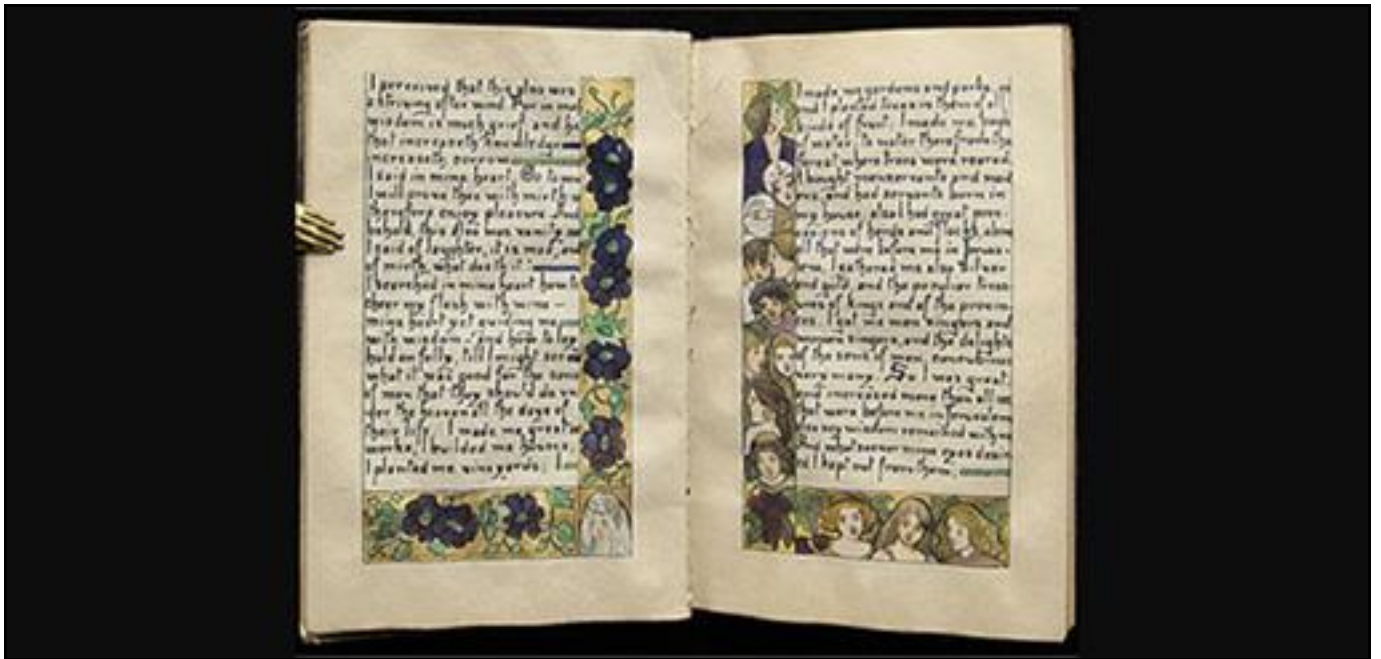 I perceived that this also was
a striving after wind. For in mu
wisdom is much grief, and he
that increaseth knowledge
increaseth sorrow
I said in mine heart, Go to now
I will prove thee with mirth
therefore enjoy pleasure. And
behold, this also was vanity.
I said of laughter, it is mad, and
of mirth, what doeth it?
I searched in mine heart how to
cheer my flesh with wine
mine heart yet guiding me
with wisdom, and how to lay
hold on folly, till I might see
what it was good for the sons
of men that they should do un
der the heaven all the days of
their life. I made me great
works, I builded me houses,
I planted me vineyards; I
made me gardens and parks,
and I planted trees in them of all
kinds of fruit; I made me pools
of water, to water therefrom the
forest where trees were reared.
I bought menservants and maid
ens, and had servants born in
my house, also I had great pos-
sessions of herds and flocks, above
all that were before me in Jerusa-
lem. I gathered me also silver
and gold, and the peculiar treas
ures of kings and of the provin
ces. I gat me men singers and
women singers, and the delights
of the sons of men, concubines
very many. So I was great,
and increased more than all
that were before me in Jerusalem
also my wisdom remained with me
And whatsoever mine eyes desir
ed I kept not from them,